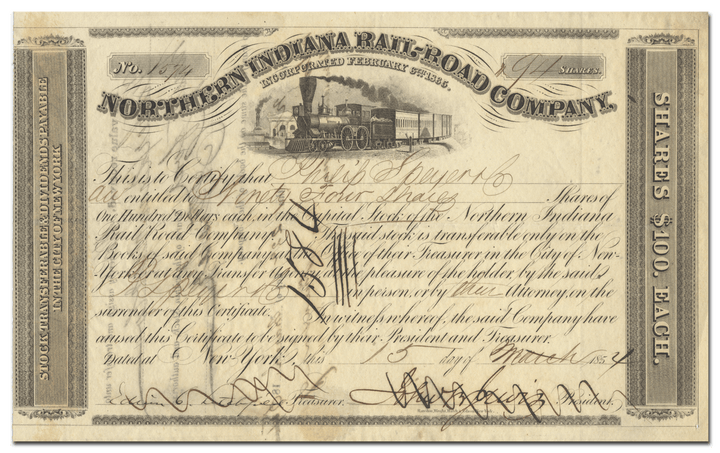 NORTHERN INDIANA RAIL-ROAD COMPANY.
INCORPORATED FEBRUARY 5TH 1835.
No. 1584
94 SHARES.
STOCK TRANSFERABLE & DIVIDENDS PAYABLE
IN THE CITY OF NEW YORK
SHARES $100. EACH.
This is to Certify that Philip Speyer & Co
are entitled to Ninety Four Shares Shares of
One Hundred Dollars each, in the Capital Stock of the Northern Indiana
Rail Road Company. The said stock is transferable only on the
Books of said Company at the of their Treasurer in the City of New-
York or at any Transfer Agency at the pleasure of the holder, by the said
in person, or by their Attorney, on the
surrender of this Certificate.
1584
In witness whereof, the said Company have
caused this Certificate to be signed by their President and Treasurer.
Dated at New-York, this 15 day of March 1854
Treasurer.
President.